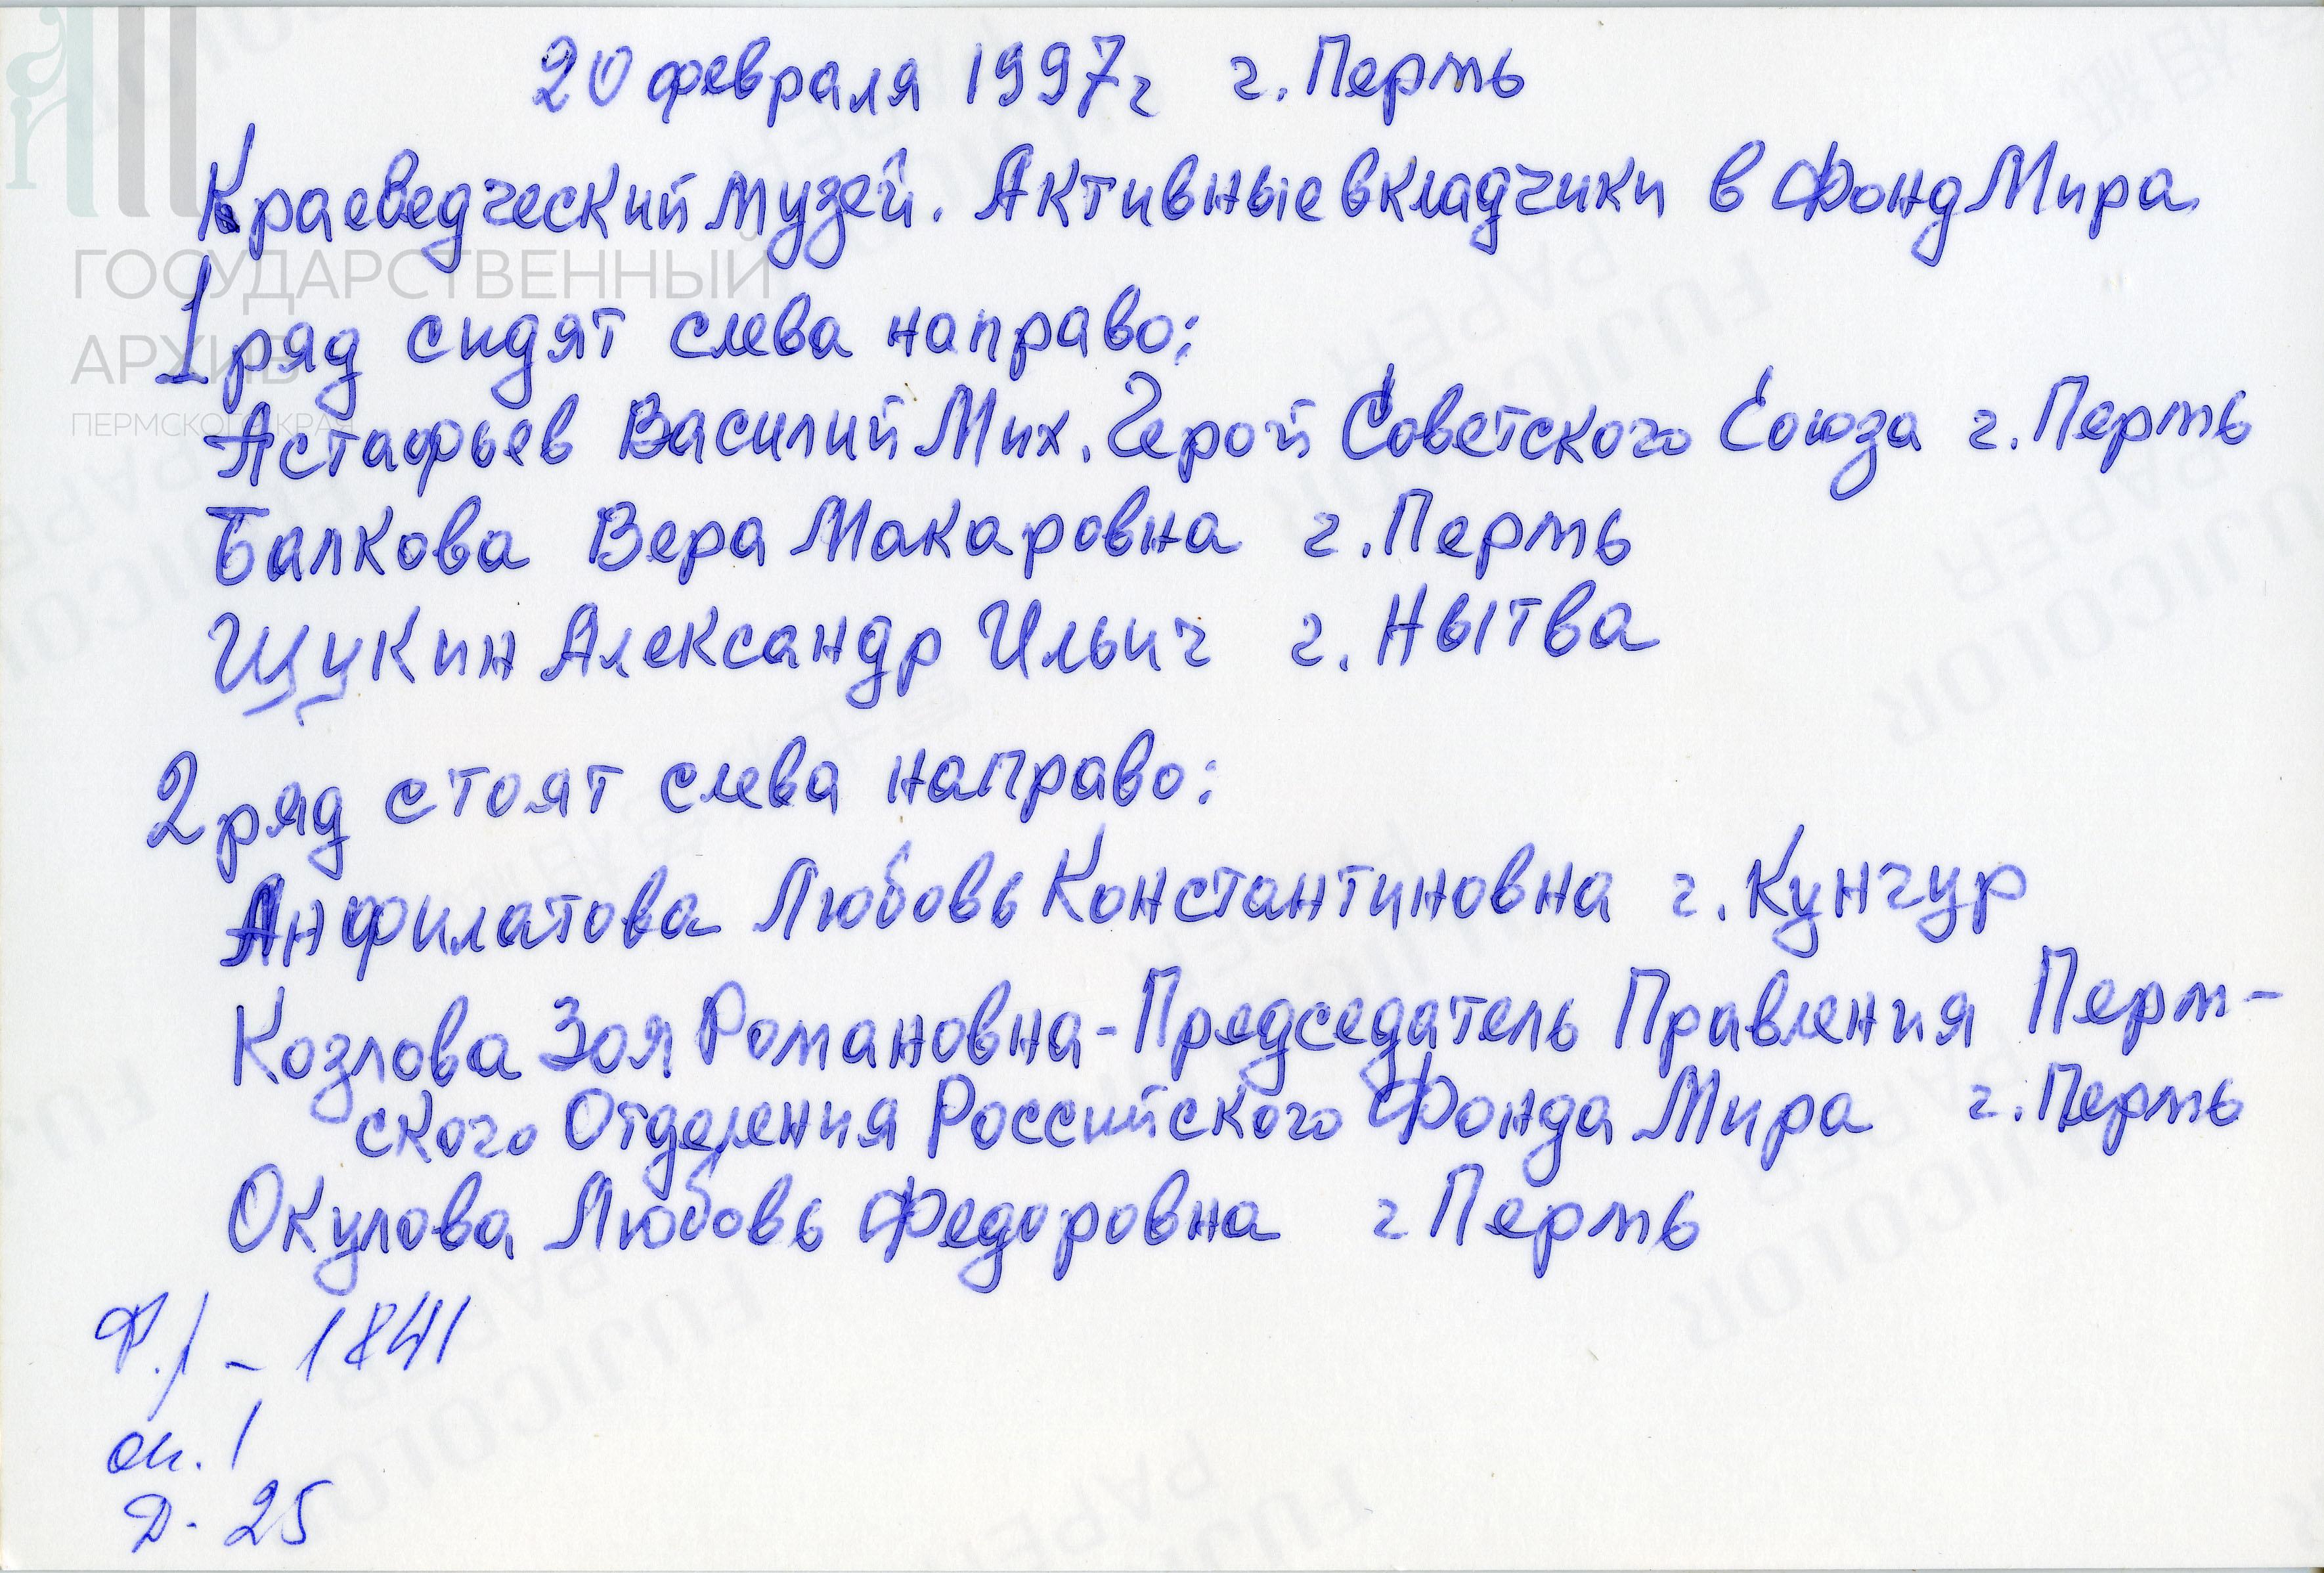 20 февраля 1997г г. Пермь
Краеведческий музей. Активные вкладчики в Фонд Мира
ГОСУДАРСТВЕННЫЙ
АРХИВ
ПЕРМСКОГО КРАЯ
1 ряд сидят слева направо:
Астафьев Василий Мих. Герой Советского Союза г. Пермь
Балкова Вера Макаровна г. Пермь
Щукин Александр Ильич г. Нытва
2 ряд стоят слева направо:
Анфилатова Любовь Константиновна г. Кунгур
Козлова Зоя Романовна - Председатель Правления Перм-
ского Отделения Российского Фонда Мира г. Пермь
Окулова Любовь Федоровна г Пермь
Ф.р - 1841
оп. 1
Д. 25
FUJICOLOR
PAPER